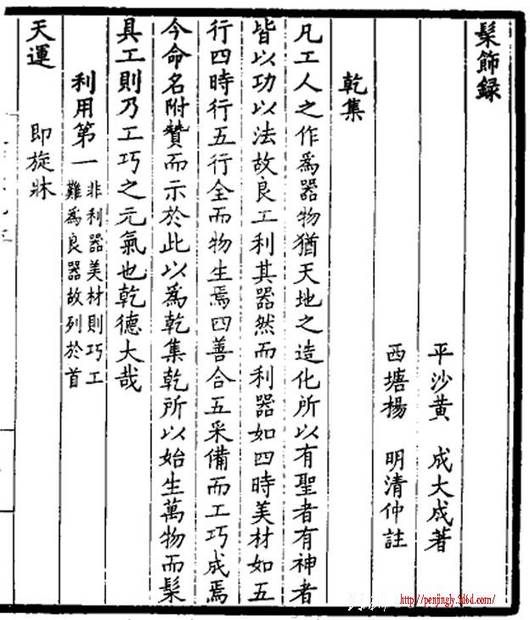 髹飾録
平沙黄 成大成著
西塘楊 明清仲註
乾集
凡工人之作為器物猶天地之造化所以有聖者有神者
皆以功以法故良工利其器然而利器如四時美材如五
行四時行五行全而物生焉四善合五采備而工巧成焉
今命名附贊而示於此以為乾集乾所以始生萬物而髹
具工則乃工巧之元氣也乾德大哉
利用第一 非利器美材則巧工
難為良器故列於首
天運 即旋牀
http://penjingly.316d.com/